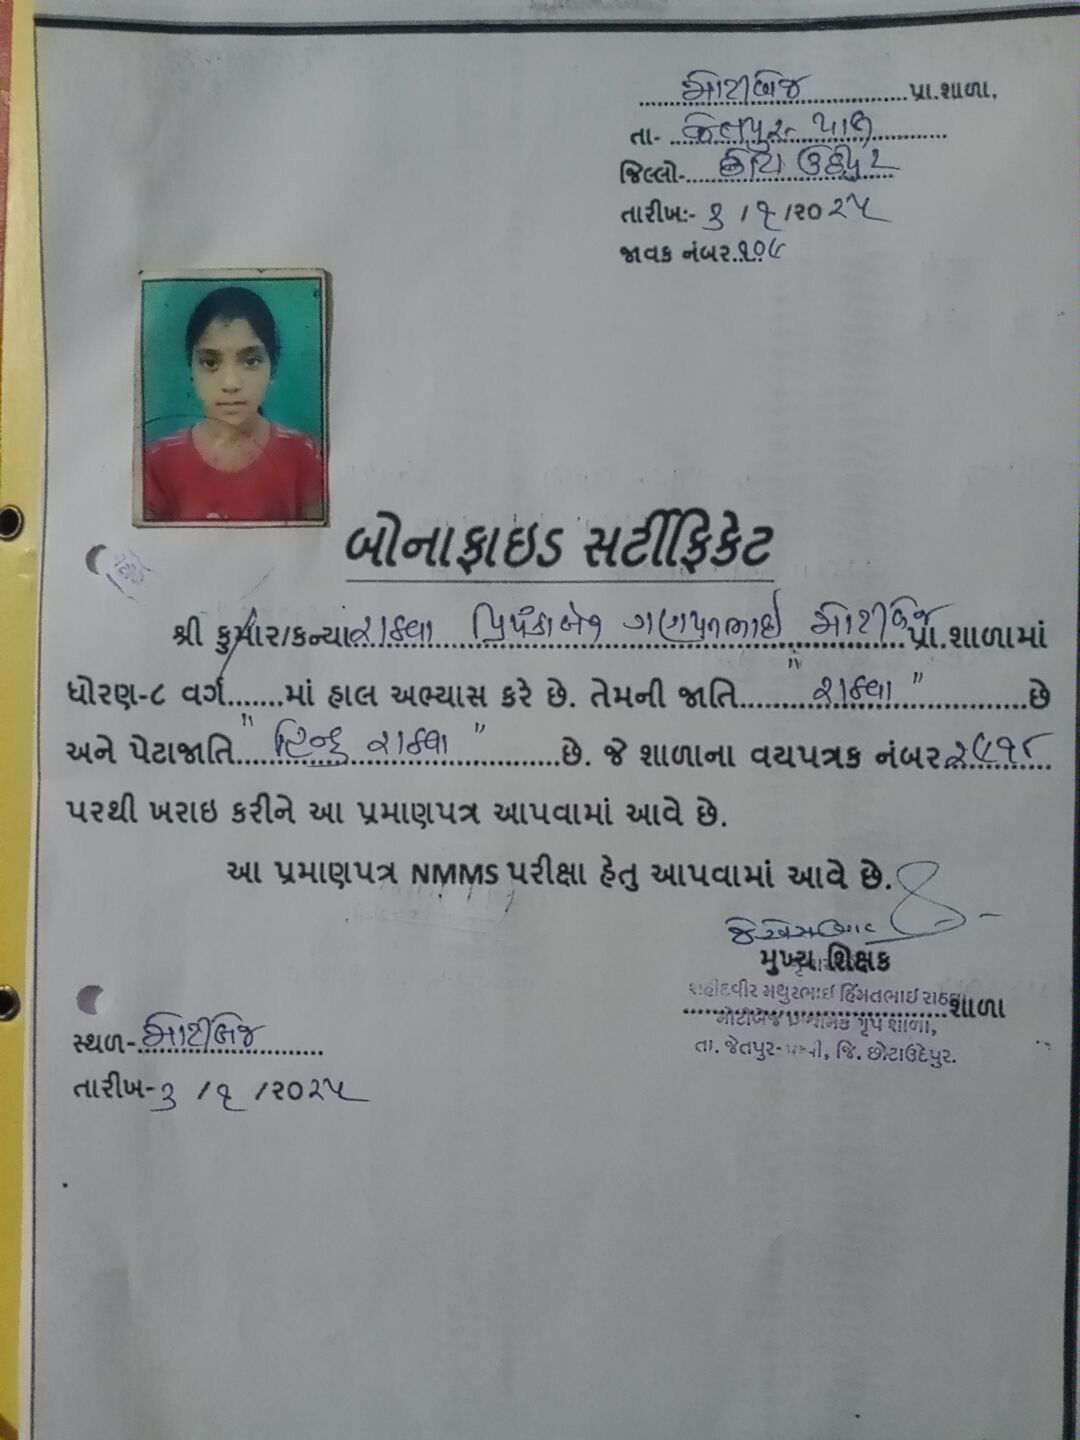 મોટીબેજ પ્રા.શાળા,
તા- જેતપુર-પાવી
જિલ્લો- છોટા ઉદેપુર
તારીખ:- ૩ /૧ /૨૦૨૫
જાવક નંબર.૧૦૯
બોનાફાઇડ સર્ટીફિકેટ
શ્રી કુમાર/કન્યા રાઠવા પ્રિયંકાબેન ગણપતભાઈ મોટીબેજ પ્રા.શાળામાં
ધોરણ-૮ વર્ગ.......માં હાલ અભ્યાસ કરે છે. તેમની જાતિ "રાઠવા" છે
અને પેટાજાતિ "હિન્દુ રાઠવા" છે. જે શાળાના વયપત્રક નંબર
પરથી ખરાઇ કરીને આ પ્રમાણપત્ર આપવામાં આવે છે.
આ પ્રમાણપત્ર NMMS પરીક્ષા હેતુ આપવામાં આવે છે.
મુખ્ય શિક્ષક
શહીદવીર મથુરભાઈ હિંમતભાઈ રાઠવા શાળા
મોટીબેજ પ્રાથમિક ગૃપ શાળા,
તા. જેતપુર-પાવી, જિ. છોટાઉદેપુર.
સ્થળ- મોટીબેજ
તારીખ-૩ /૧ /૨૦૨૫